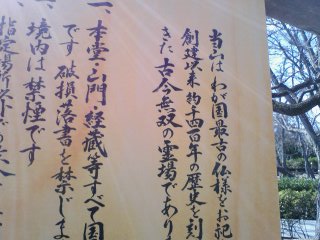 当山はわが国最古の仏様をお祀
創建以来約千四百年の歴史を刻
きた古今無双の霊場でありま
一、本堂・山門・経蔵等すべて国
です 破損落書を禁じま
一、境内は禁煙です
指定場所以外